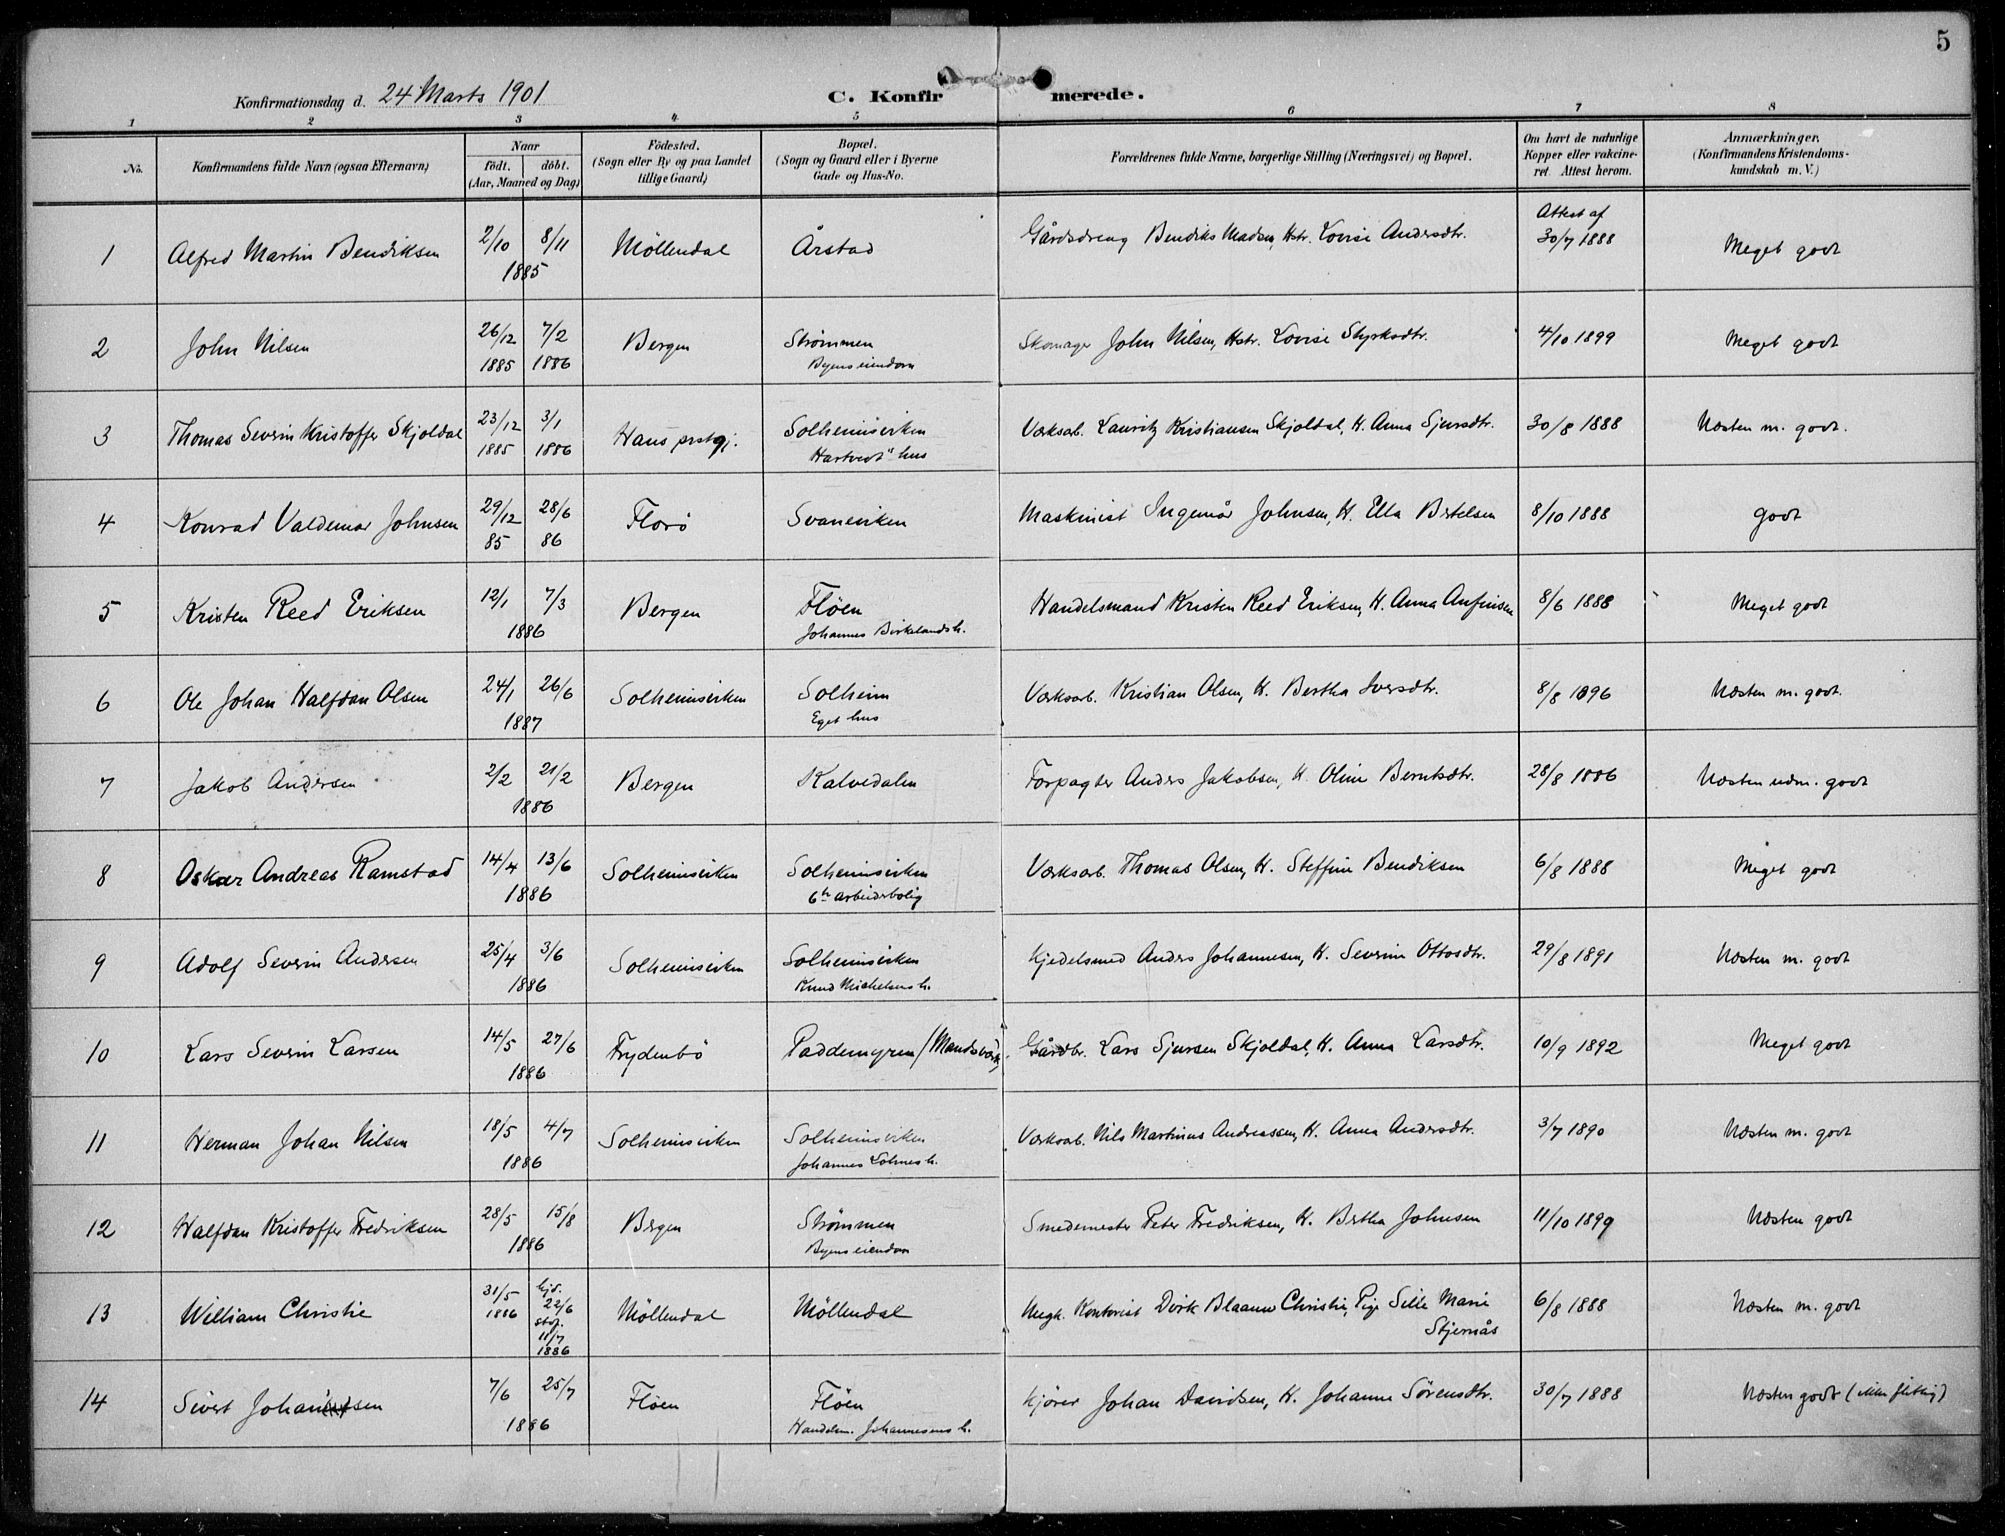 5
Konfirmationsdag d. 24 Marts 1901 C. Konfirmerede.
1 2 3 4 5 6 7 8
No. Konfirmandens fulde Navn (ogsaa Efternavn) Naar födt. döbt. (Aar, Maaned og Dag) Födested. (Sogn eller By og paa Landet tillige Gaard) Bopæl. (Sogn og Gaard eller i Byerne Gade og Hus-No. Forældrenes fulde Navne, borgerlige Stilling (Næringsvei) og Bopæl. Om havt de naturlige Kopper eller vakcineret. Attest herom. Anmærkninger. (Konfirmandens Kristendomskundskab m. V.)
1 Alfred Martin Bendiksen 2/10 8/11 1885 Möllendal Årstad Gårdsdreng Bendiks Madsen, Hstr. Lovise Andersdtr. Attest af 30/7 1888 Meget godt
2 John Nilsen 26/12 1885 7/2 1886 Bergen Strömmen Byens eiendom Skomager John Nilsen, Hstr. Lovise Styrksdtr. 4/10 1899 Meget godt
3 Thomas Severin Kristoffer Skjoldal 23/12 1885 3/1 1886 Haus prstgj. Solheimsviken Hartvedt" hus Værksarb. Lauritz Kristiansen Skjoldal, H. Anna Sjursdtr. 30/8 1888 Næsten m. godt.
4 Konrad Valdemar Johnsen 29/12 85 28/6 86 Florö Svaneviken Maskinist Ingemår Johnsen, H. Ella Bertelsen 8/10 1888 godt
5 Kristen Reed Eriksen 12/1 7/3 1886 Bergen Flöen Johannes Birkelands h. Handelsmand Kristen Reed Eriksen, H. Anna Anfinsen 8/6 1888 Meget godt
6 Ole Johan Halfdan Olsen 24/1 26/6 1887 Solheimsviken Solheim Eget hus Værksarb. Kristian Olsen, H. Bertha Iversdtr. 8/8 1896 Næsten m. godt.
7 Jakob Andersen 2/2 21/2 1886 Bergen Kalvedalen Forpagter Anders Jakobsen, H. Oline Berntsdtr. 28/8 1886 Næsten udm. godt
8 Oskar Andreas Ramstad 14/4 13/6 1886 Solheimsviken Solheimsviken 6te arbeiderbolig Værksarb. Thomas Olsen, H. Steffine Bendiksen 6/8 1888 Meget godt
9 Adolf Severin Andersen 25/4 3/6 1886 Solheimsviken Solheimsviken Knud Michelsens h. Kjedelsmed Anders Johannesen, H. Severine Ottosdtr. 29/8 1891 Næsten m. godt
10 Lars Severin Larsen 14/5 27/6 1886 Frydenbö Paddemyren / Mandsverk. Gårdbr. Lars Sjursen Skjoldal, H. Anna Larsdtr. 10/9 1892 Meget godt
11 Herman Johan Nilsen 18/5 4/7 1886 Solheimsviken Solheimsviken Johannes h. Værksarb. Nils Martinus Andreassen, H. Anna Andersdtr. 3/7 1890 Næsten m. godt
12 Halfdan Kristoffer Fredriksen 28/5 15/8 1886 Bergen Strömmen Byens eiendom Smedemester Peter Fredriksen, H. Bertha Johnsen 11/10 1899 Næsten godt
13 William Christie 31/5 1886 hjd. 22/6 stdf. 11/7 1886 Möllendal Möllendal Ungk. Kontorist Dirk Blaauw Christie, Pige Sille Marie Stjernås 6/8 1888 Næsten m. godt
14 Sivert Johansen 7/6 25/7 1886 Flöen Flöen Handelsm. Johannesens h. Kjörer Johan Davidsen, H. Johanne Sörensdtr. 30/7 1888 Næsten godt (ikke flittig)